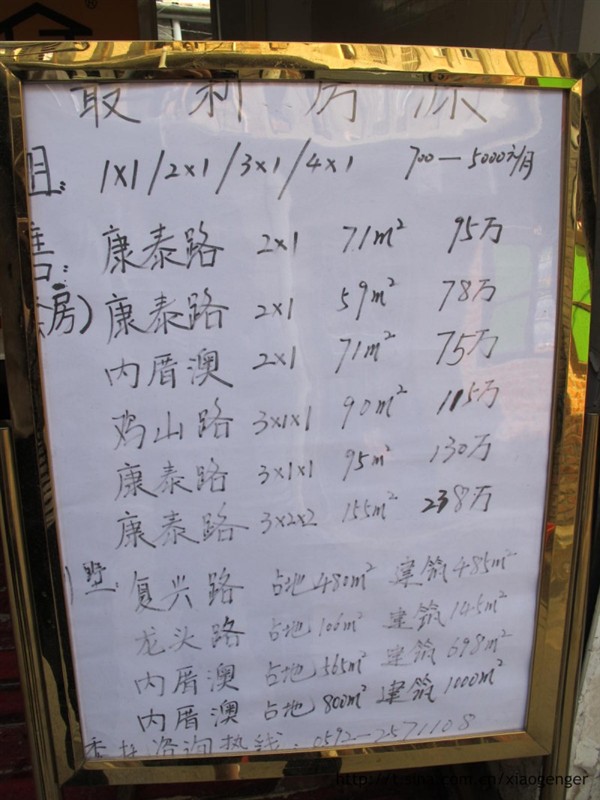 最利房源
租: 1×1/2×1/3×1/4×1 700—5000元/月
售: 康泰路 2×1 71m² 95万
房) 康泰路 2×1 59m² 78万
内厝澳 2×1 71m² 75万
鸡山路 3×1×1 90m² 115万
康泰路 3×1×1 95m² 130万
康泰路 3×2×2 155m² 238万
墅: 复兴路 占地480m² 建筑485m²
龙头路 占地106m² 建筑145m²
内厝澳 占地565m² 建筑698m²
内厝澳 占地800m² 建筑1000m²
咨询热线: 0592-2571108
http://t.sina.com.cn/xiaogenger